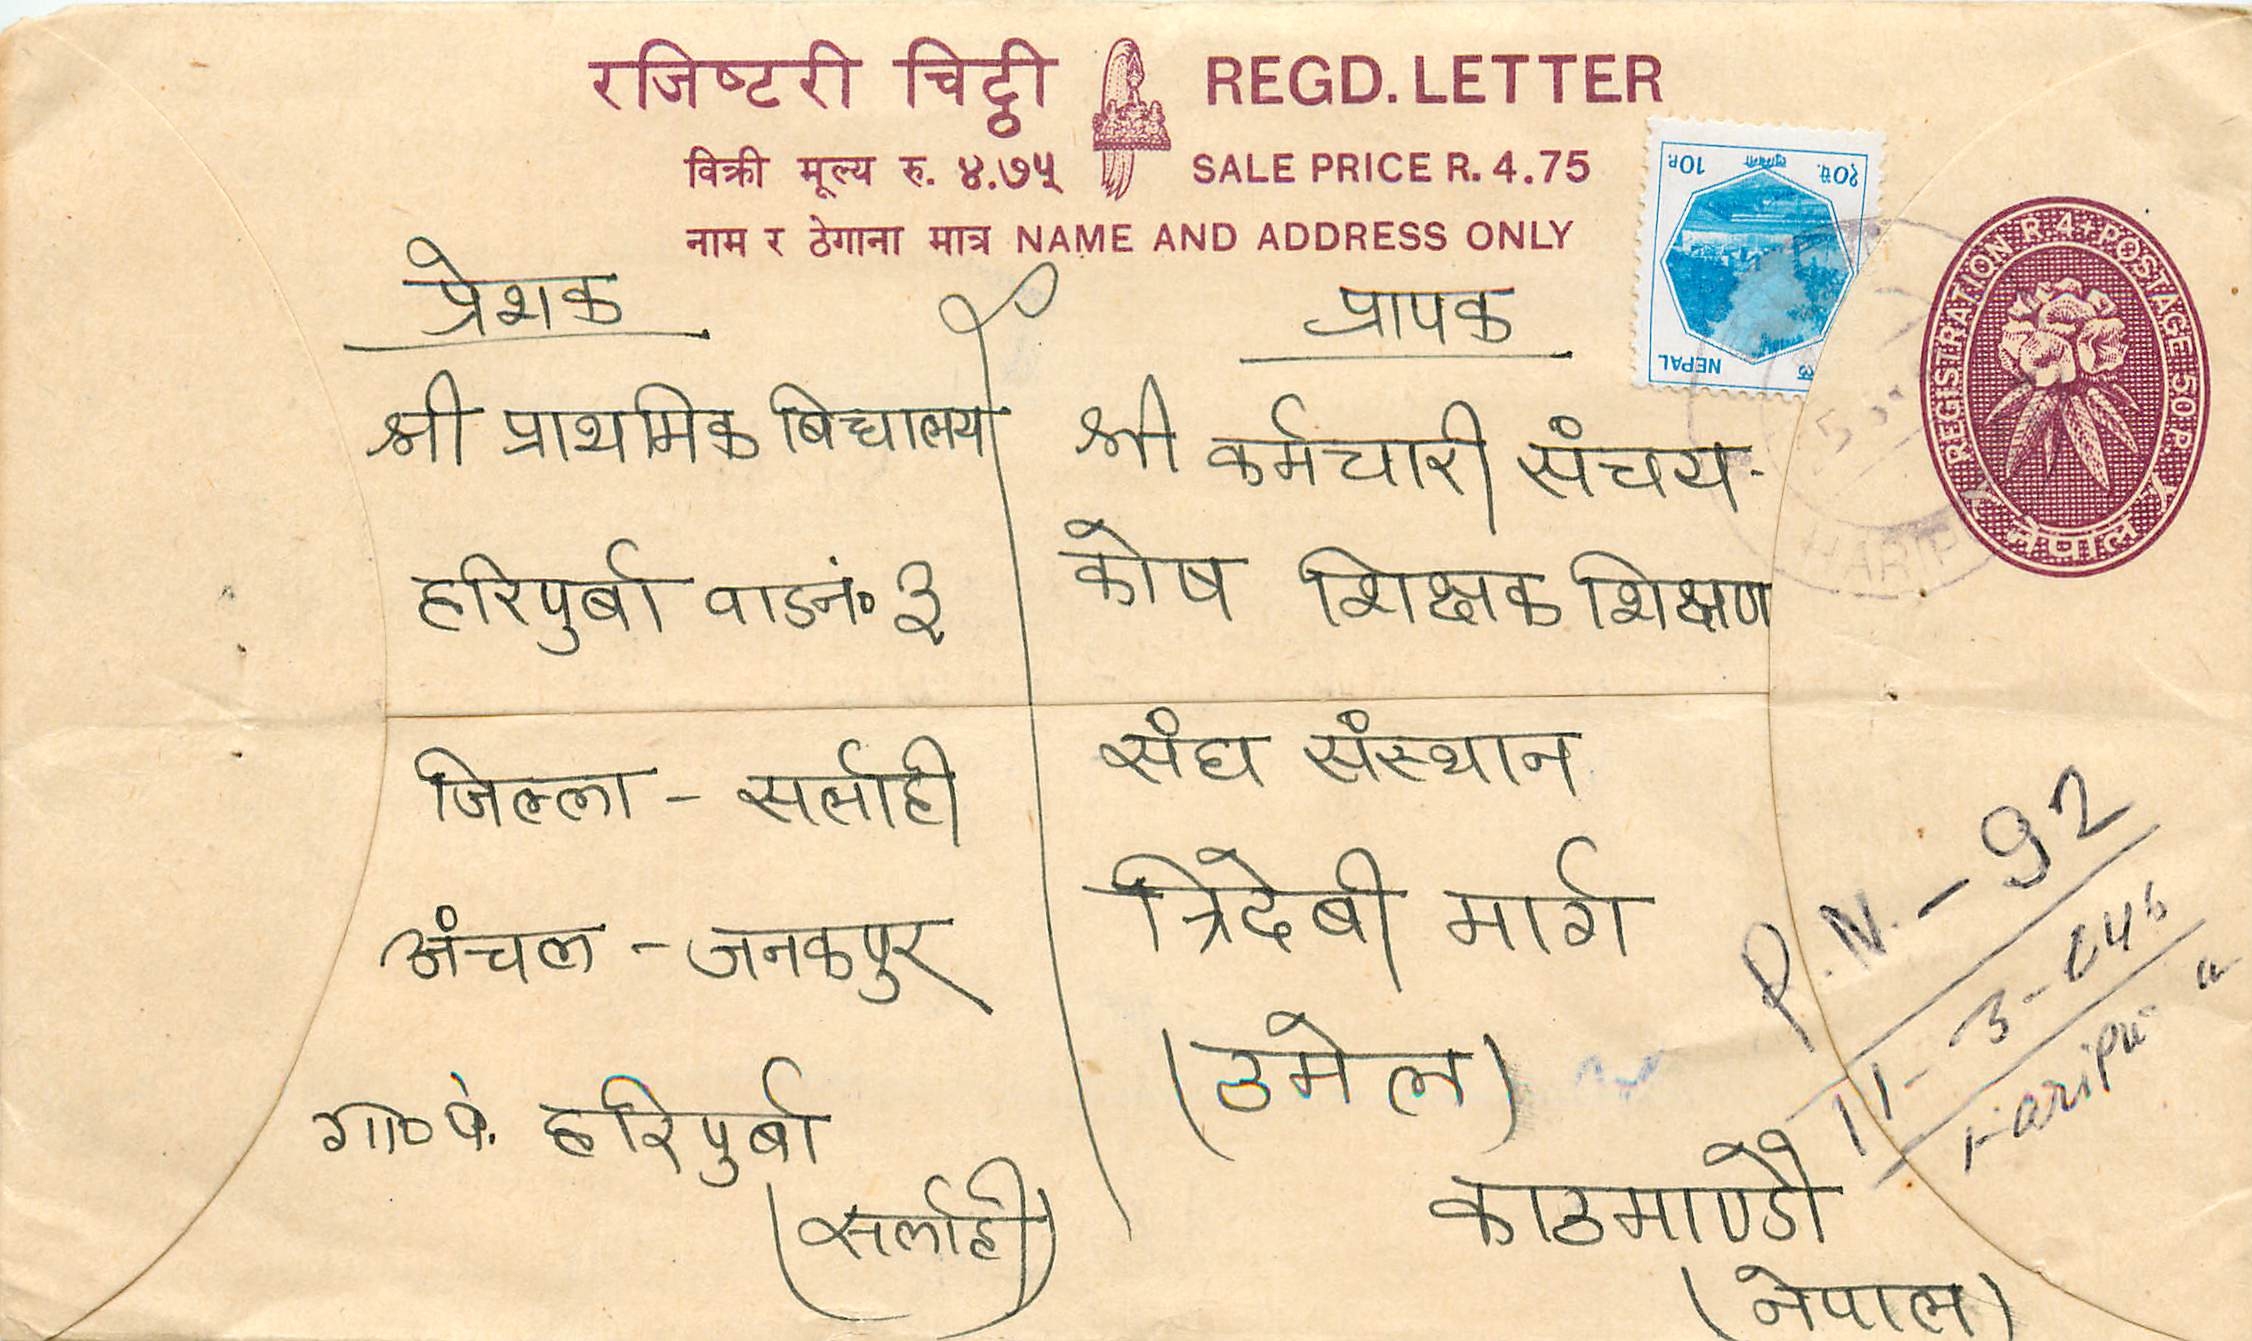 रजिष्टरी चिट्ठी REGD. LETTER
विक्री मूल्य रु. ४.७५ SALE PRICE R. 4.75
नाम र ठेगाना मात्र NAME AND ADDRESS ONLY
10P. १०पै.
NEPAL
REGISTRATION R.4+POSTAGE 50 P.
नेपाल
प्रेशक
श्री प्राथमिक बिद्यालय
हरिपुर्बा वाडनं॰ ३
जिल्ला - सर्लाही
अंचल - जनकपुर
गा० पं. हरिपुर्बा
(सर्लाही)
प्रापक
श्री कर्मचारी संचय-
कोष शिक्षक शिक्षण
संघ संस्थान
त्रिदेबी मार्ग
(ठमेल)
काठमाण्डौ
(नेपाल)
P.N. - 92
11-3-046